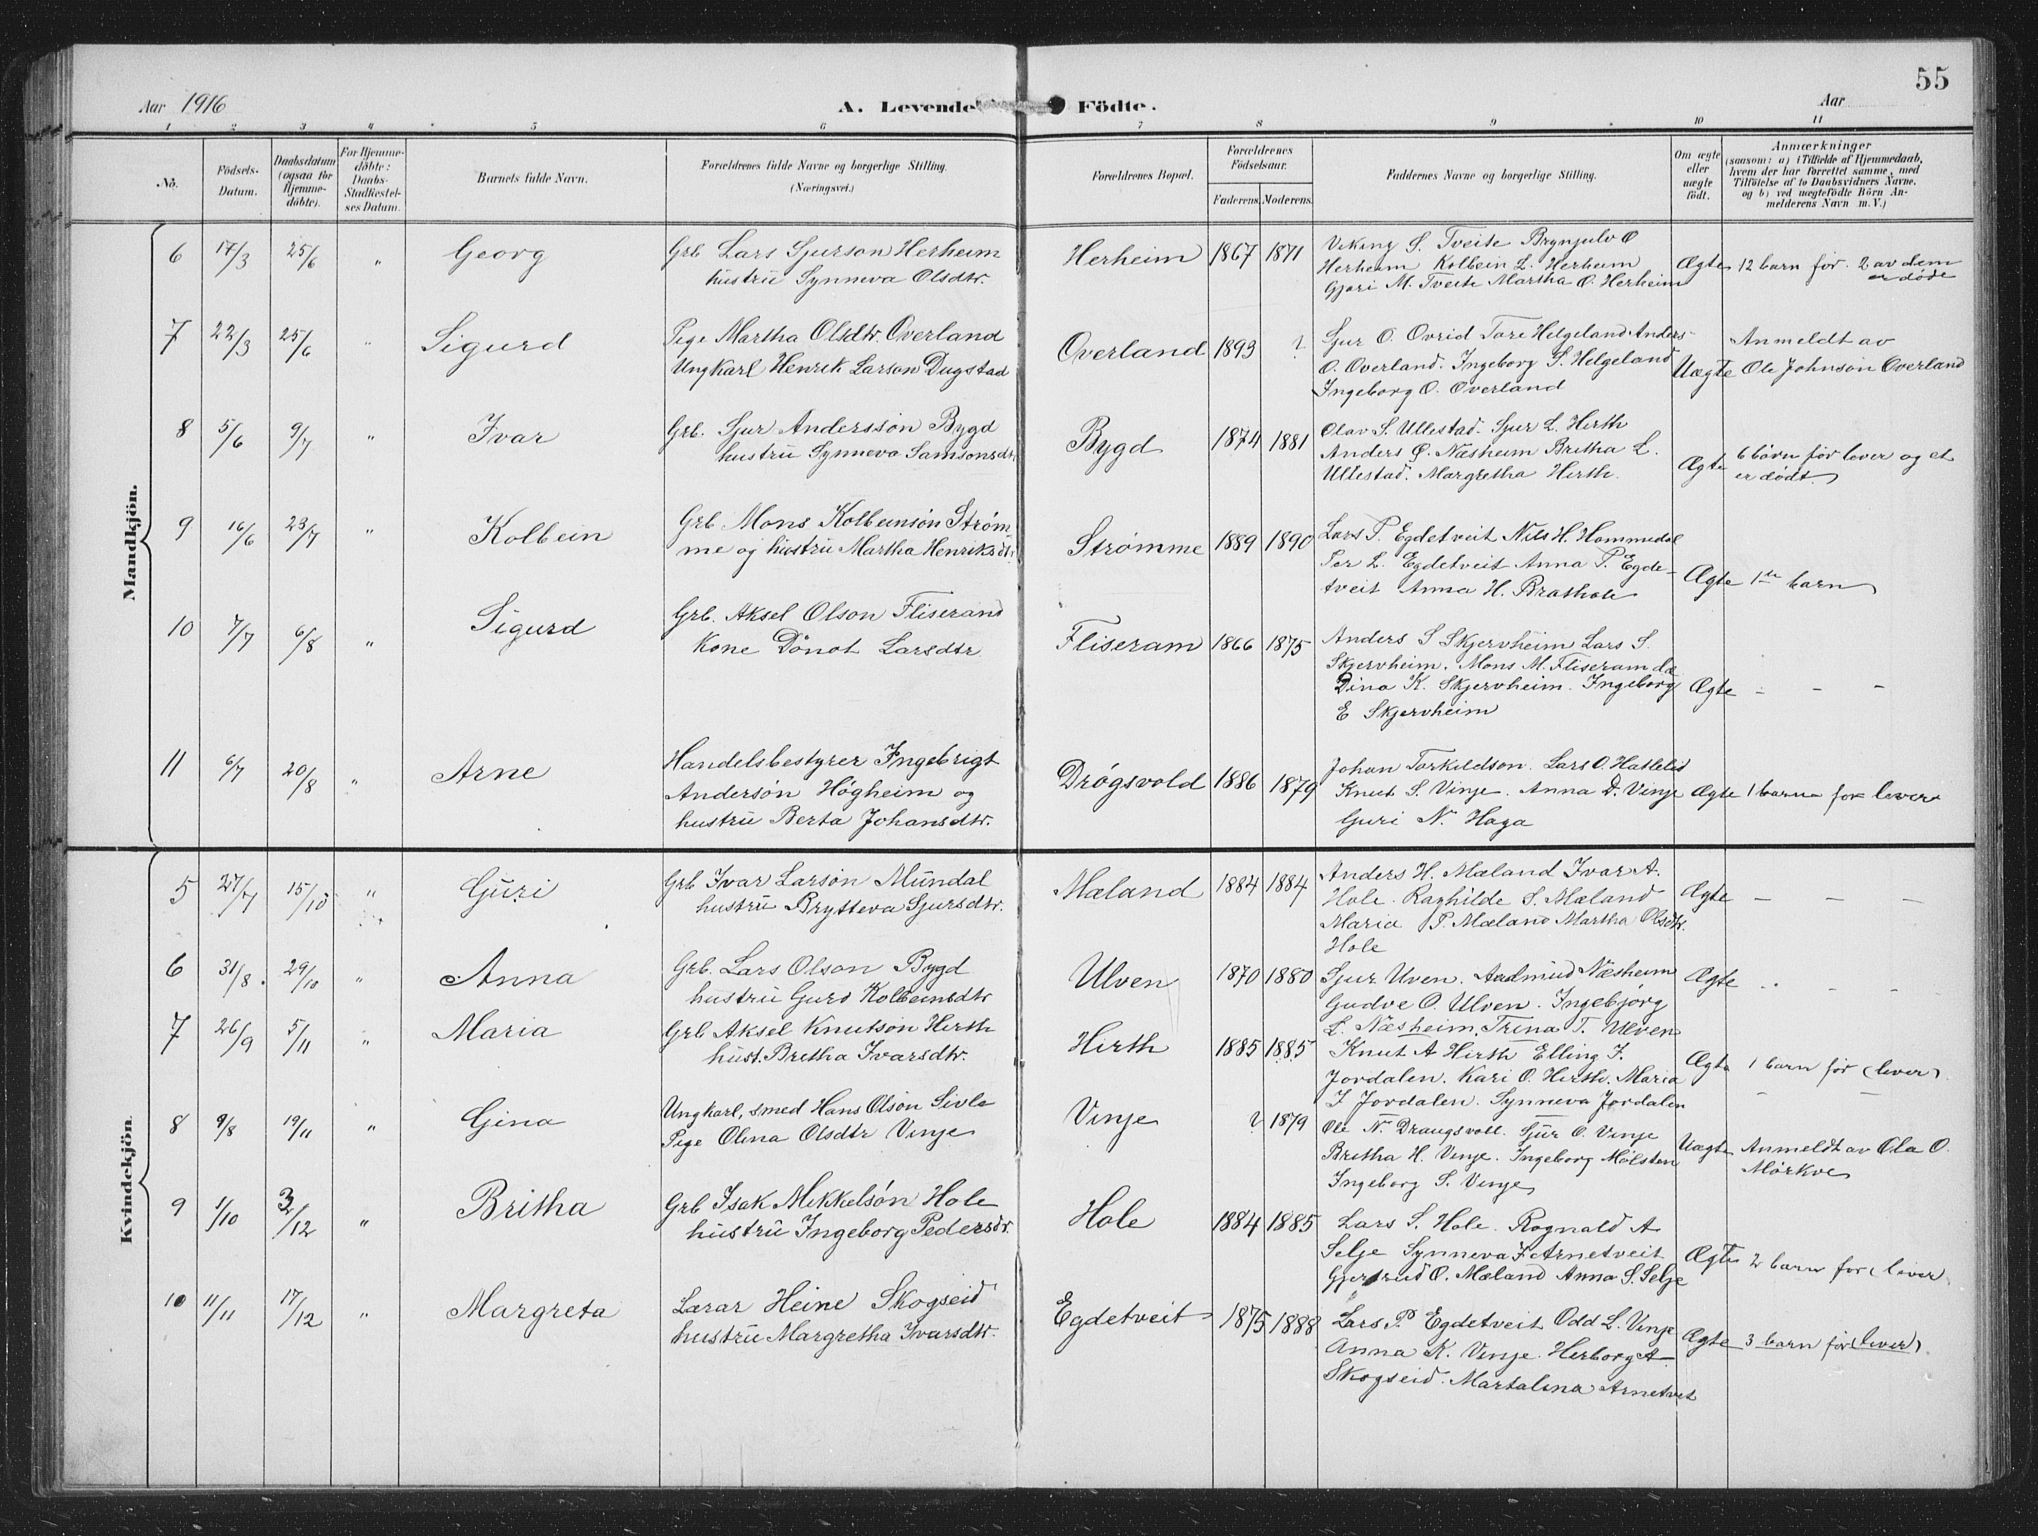 55
Aar 1916
A. Levende Födte.
Aar
1 2 3 4 5 6 7 8 9 10 11
No.
Födsels-
Datum.
Daabsdatum
(ogsaa for
Hjemme-
döbte).
For Hjemme-
döbte:
Daabs-
Stadfæstel-
ses Datum.
Barnets fulde Navn.
Forældrenes fulde Navne og borgerlige Stilling.
(Næringsvei.)
Forældrenes Bopæl.
Forældrenes
Födselsaar.
Faderens. Moderens.
Faddernes Navne og borgerlige Stilling.
Om ægte
eller
uægte
födt.
Anmærkninger
(saasom: a) i Tilfælde af Hjemmedaab,
hvem der har forrettet samme, med
Tilföielse af to Daabsvidners Navne,
og b) ved uægtefödte Börn An-
melderens Navn m. V.)
Mandkjön.
6 17/3 25/6 " Georg
Grb Lars Sjurson Herheim
hustru Synneva Olsdtr.
Herheim 1867 1871
Viking S. Tveite Brynjulv O
Herheim Kolbein L. Herheim
Gjøri M. Tveite Martha O. Herheim
Ægte 12 barn før. 2 av dem
er døde
7 22/3 25/6 " Sigurd
Pige Martha Olsdtr. Overland
Ungkarl Henrik Larson Dugstad
Overland 1893 ?
Sjur O. Ovrid Tore Helgeland Anders
O. Overland. Ingeborg S. Helgeland
Ingeborg O. Overland
Uægte Anmeldt av
Ole Johnson Overland
8 5/6 9/7 " Ivar
Grb. Sjur Anderssón Bygd
hustru Synneva Samsonsdtr.
Bygd 1874 1881
Olav S. Ullestad. Sjur L. Hirth
Anders O. Næsheim Britha L.
Ullestad. Margretha Hirth.
Ægte 6 börn før lever og et
er dødt.
9 16/6 23/7 " Kolbein
Grb Mons Kolbeinsón Strøm
me og hustru Martha Henriksdtr.
Strømme 1889 1890
Lars P. Egdetveit Nils H. Hommedal
Per L. Egdetveit Anna P. Egde-
tveit Anna H. Brathole
Ægte 1te barn
10 7/7 6/8 " Sigurd
Grb. Aksel Olson Fliseram
Kone Dónot Larsdtr
Fliseram 1866 1875
Anders S Skjervheim Lars S.
Skjervheim. Mons M. Fliseram
Dina K. Skjervheim. Ingeborg
E Skjervheim
Ægte - - -
11 6/7 20/8 " Arne
Handelsbestyrer Ingebrigt
Andersón Högheim og
hustru Berta Johansdtr.
Drógsvold 1886 1879
Johan Torkildson. Lars O. Hatlelid
Knut S. Vinje. Anna D. Vinje
Guri N. Haga
Ægte 1 barn før lever
Kvindekjön.
5 27/7 15/10 " Guri
Grb Ivar Larsón Mundal
hustru Brytteva Sjursdtr.
Mæland 1884 1884
Anders H. Mæland Ivar A.
Hole. Raghilde S. Mæland
Maria P. Mæland Martha Olsdtr.
Hole
Ægte - - -
6 31/8. 29/10 " Anna
Grb. Lars Olson Bygd
hustru Guro Kolbeinsdtr
Ulven 1870 1880
Sjur Uven. Aadmund Næsheim
Gudve O. Ulven. Ingebjørg
L. Næsheim. Trina T. Ulven
Ægte - - -
7 26/9 5/11 " Maria
Grb Aksel Knutsón Hirth
hust. Bretha Ivarsdtr.
Hirth 1885 1885
Knut A Hirth Elling I.
Jordalen. Kari O. Hirth. Maria
I Jordalen. Synneva Jordalen
Ægte 1 barn før (lever)
8 9/8 19/11 " Gina
Ungkarl, smed Hans Olsón Sivle
Pige Olina Olsdtr Vinje
Vinje ? 1879
Ole N. Draugsvoll. Sjur O. Vinje
Bretha H. Vinje. Ingeborg Mølsten
Ingeborg S. Vinje
Uægte Anmeldt av Ola O.
Mørkve
9 1/10 3/12 " Britha
Grb Isak Mikkelsón Hole
hustru Ingeborg Pedersdtr.
Hole 1884 1885
Lars S. Hole. Rognald A
Selje Synneva I Arnetveit
Gjertrud O. Mæland Anna S. Selje
Ægte 2 barn før (lever
10 11/11 17/12 " Margreta
Lærar Heine Skogseid
hustru Margretha Ivarsdtr.
Egdetveit 1875 1888
Lars P Egdetveit Odd L. Vinje
Anna K. Vinje. Herborg A
Skogseid. Martalina Arnetveit
Ægte 3 barn før (lever)